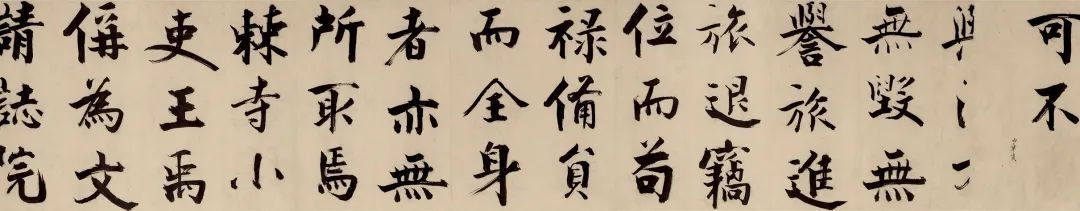 可不
無毀無
譽旅進
旅退竊
位而苟
祿備貟
而全身
者亦無
所取焉
棘寺小
吏王禹
偁為文
請誌院